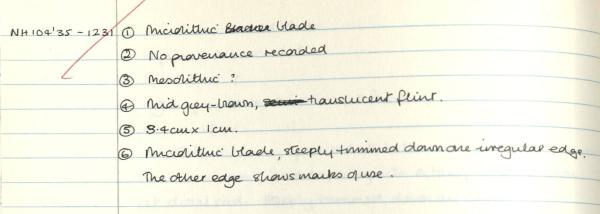 NH104'35-1231 ① Microlithic blade
② No provenance recorded
③ Mesolithic ?
④ Mid grey-brown, translucent flint.
⑤ 3.4cm x 1cm.
⑥ Microlithic blade, steeply trimmed down one irregular edge.
The other edge shows marks of use.